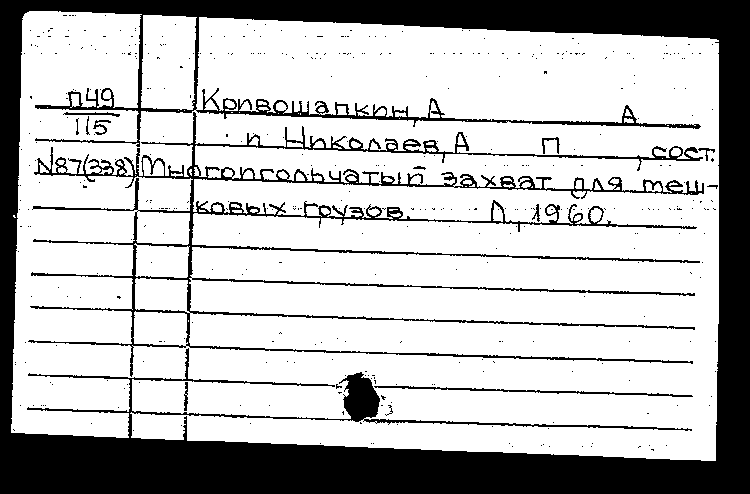 П49 Кривошапкин, А А
115 и Николаев, А П , сост.
N87(338) Многоигольчатый захват для меш-
ковых грузов. Л., 1960.